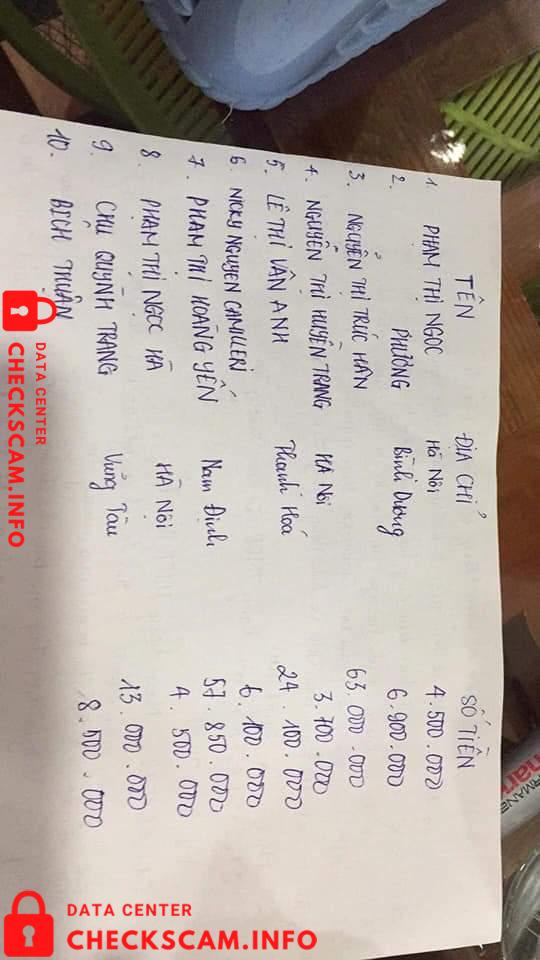 TÊN ĐỊA CHỈ SỐ TIỀN
1. PHẠM THỊ NGỌC Hà Nội 4.500.000
2. PHƯƠNG Bình Dương 6.900.000
3. NGUYỄN THỊ TRÚC HÂN 63.000.000
4. NGUYỄN THỊ HUYỀN TRANG HÀ Nội 3.700.000
5. LÊ THỊ VÂN ANH Thanh Hoá 24.100.000
6. NICKY NGUYEN CAMILLERI 6.100.000
7. PHẠM THỊ HOÀNG YẾN Nam Định 57.850.000
8. PHẠM THỊ NGỌC HÀ HÀ NỘI 4.500.000
9. CHU QUỲNH TRANG Vũng Tàu 13.000.000
10. BÍCH THUẬN 8.500.000
DATA CENTER
CHECKSCAM.INFO
DATA CENTER
CHECKSCAM.INFO